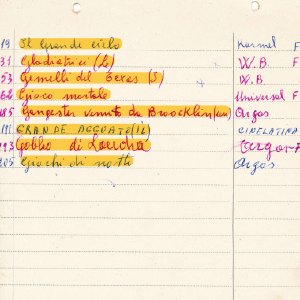 19 Il Grande cielo Karmel F
31 Gladiatori (I) W.B. F
53 Gemelli del Texas (I) W.B.
62 Gioco mortale Universal F
185 Gangster venuto da Broocklin (un) Argos
191 GRANDE AGGUATO (IL) CINELATINA
193 Gobbo di Londra Cargor-F
205 Giochi di notte Argos